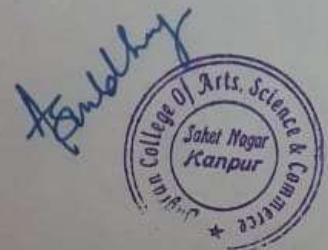 College Of Arts, Science & Commerce
Saket Nagar
Kanpur